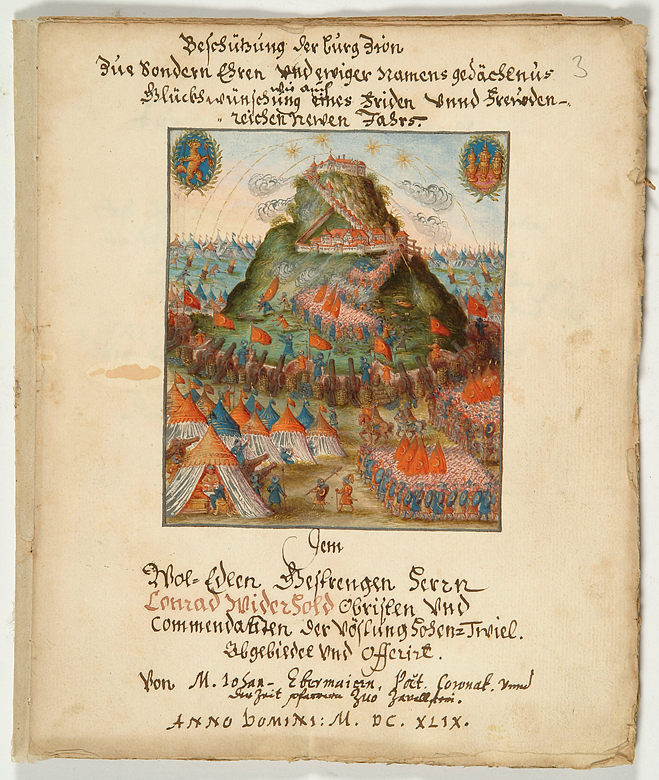 Beschützung der burg Zion
Zue Sondern Ehren und ewiger Namens gedächtnus
wie auch
Glückhwünschung eines Friden unnd Freuden-
reichen Newen Jahrs.
3
Dem
Wol-Edlen Gestrengen Herrn
Conrad Widerhold Obristen Und
Commendanten der Vöstung Hohen=Twiel.
Abgebildet und Offerirt.
Von M. Johan- Ebermaiern, Poët. Coronat. Unnd
der Zeit pfarrern Zuo Zavelstein.
ANNO DOMINI: M. DC. XLIX.